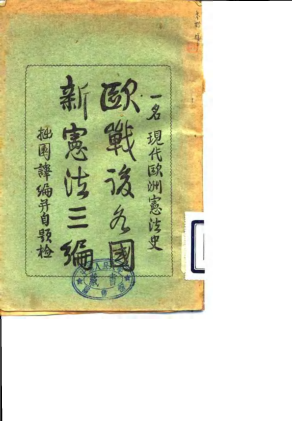 一名現代歐洲憲法史
歐戰後各國
新憲法三編
拙園譯編并自題檢